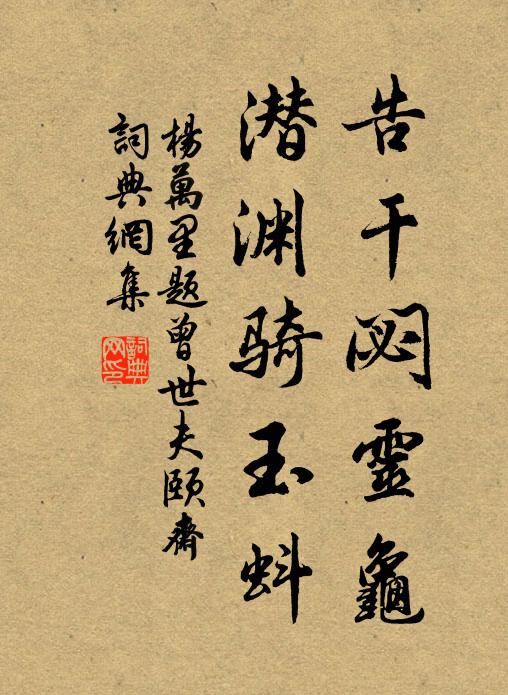 告干閟靈龜
潛渊骑玉蚪
楊萬里題曾世夫頤齋
詞典網集
詞典网印